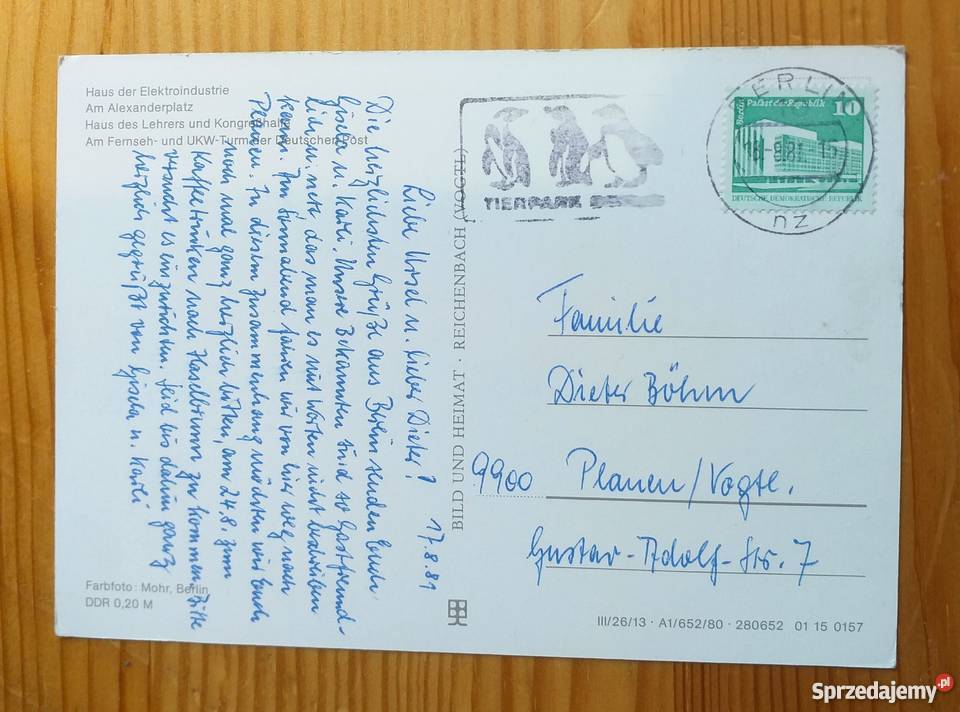 Haus der Elektroindustrie
Am Alexanderplatz
Haus des Lehrers und Kongreßhalle
Am Fernseh- und UKW-Turm der Deutschen Post
17.8.81
Liebe Ursel u. lieber Dieter!
Die herzlichsten Grüße aus Berlin senden Euch
Gisela u. Karli. Unsere Bekannten sind so Gastfreund-
lich u. nett, das man es mit Worten nicht beschreiben
kann. Am Sonnabend fahren wir von hier weg nach
Plauen. In diesem Zusammenhang möchten wir Euch
noch mal ganz herzlich bitten, am 24.8. zum
Kaffeetrinken nach Haselbrunn zu kommen, Bitte
versucht es einzurichten. Seid bis dahin ganz
herzlich gegrüßt von Gisela u. Karli
Farbfoto: Mohr, Berlin
DDR 0,20 M
BILD UND HEIMAT · REICHENBACH (VOGTL)
TIERPARK
BERLIN
nz
Berlin Palast der Republik
10
DEUTSCHE DEMOKRATISCHE REPUBLIK
Familie
Dieter Böhm
9900 Plauen/Vogtl.
Gustav-Adolf-Str. 7
III/26/13 · A1/652/80 · 280652 01 15 0157
Sprzedajemy.pl